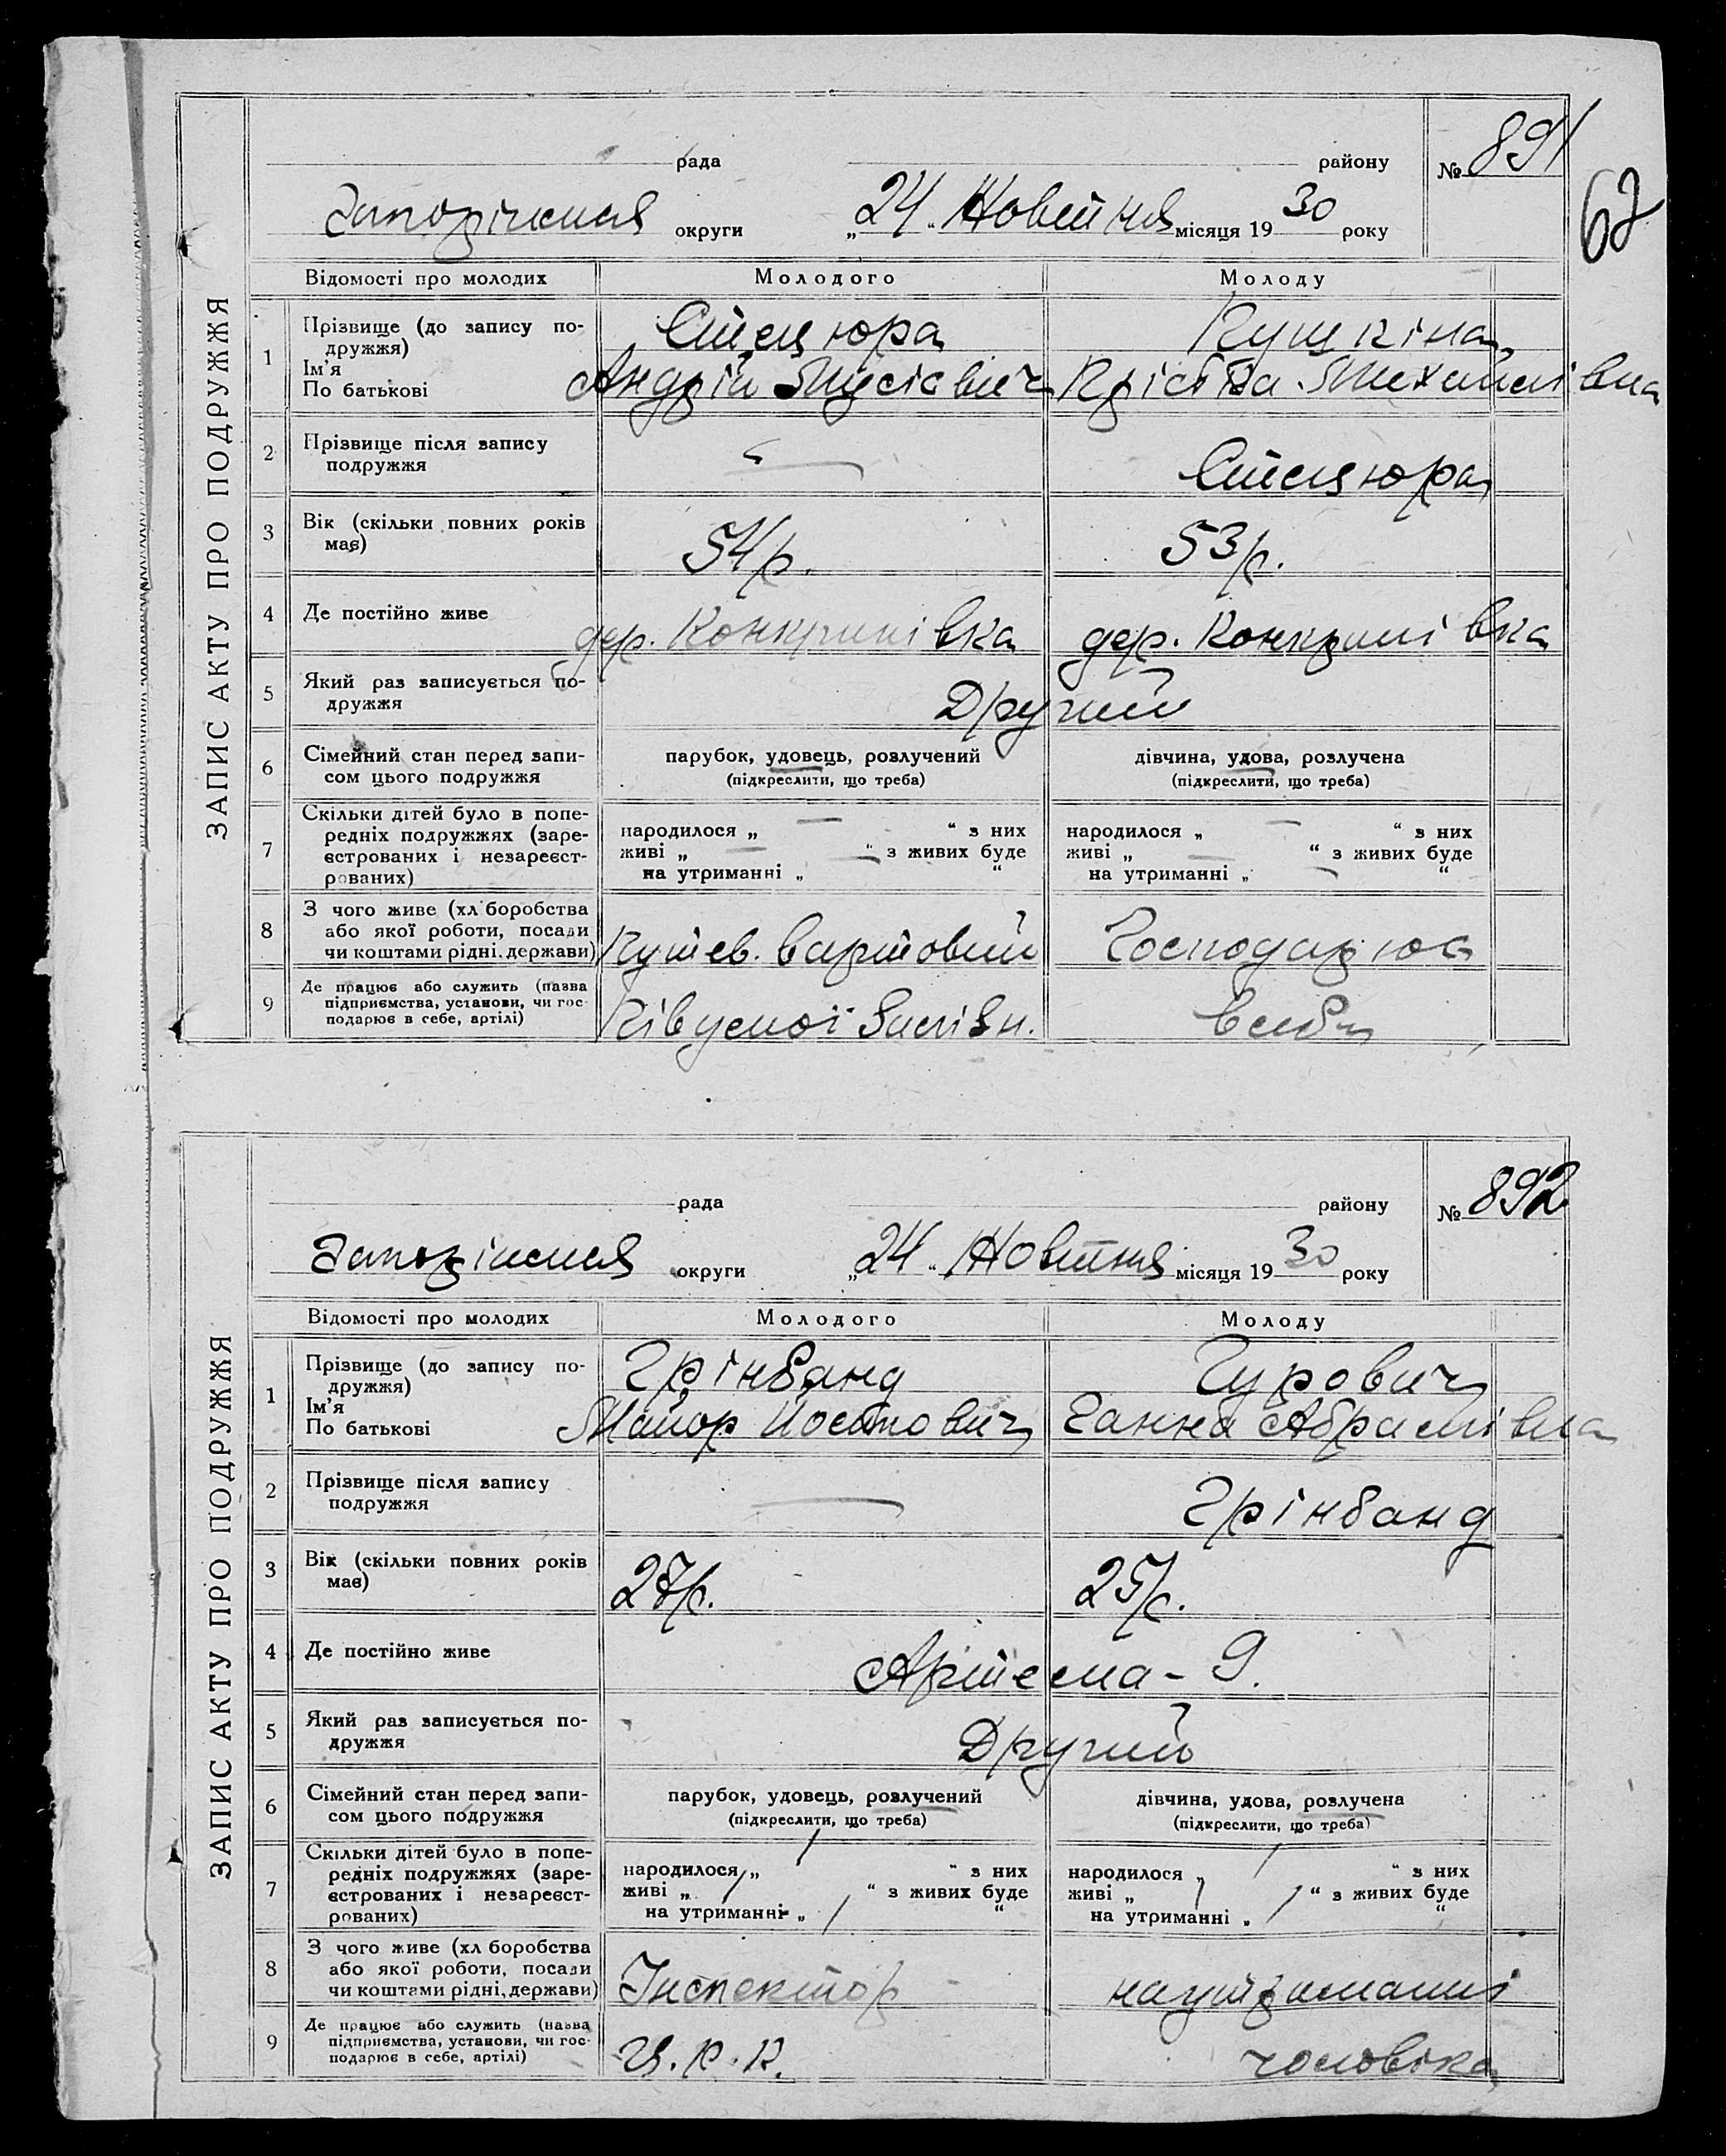 ЗАПИС АКТУ ПРО ПОДРУЖЖЯ
рада району № 891
67
Запоріжжя округи „24“ Жовтня місяця 1930 року
Відомості про молодих Молодого Молоду
1 Прізвище (до запису по-
дружжя)
Ім'я
По батькові
Стецюра
Андрій Мусієвич
Кушкіна
Михайлівна
2 Прізвище після запису
подружжя
Стецюра
3 Вік (скільки повних років
має)
54 р. 53 р.
4 Де постійно живе
дер. дер.
5 Який раз записується по-
дружжя
Другий
6 Сімейний стан перед запи-
сом цього подружжя
парубок, удовець, розлучений
(підкреслити, що треба)
дівчина, удова, розлучена
(підкреслити, що треба)
7 Скільки дітей було в попе-
редніх подружжях (заре-
єстрованих і незареєст-
рованих)
народилося „ — “ з них
живі „ — “ з живих буде
на утриманні „ — “
народилося „ — “ з них
живі „ — “ з живих буде
на утриманні „ — “
8 З чого живе (хл боробства
або якої роботи, посади
чи коштами рідні, держави)
вартовий
Господарює
9 Де працює або служить (назва
підприємства, установи, чи гос-
подарює в себе, артілі)
в себе
ЗАПИС АКТУ ПРО ПОДРУЖЖЯ
рада району № 892
Запоріжжя округи „24“ Жовтня місяця 1930 року
Відомості про молодих Молодого Молоду
1 Прізвище (до запису по-
дружжя)
Ім'я
По батькові
Грінбанд
Майор
Гурович
Ганна Абрамівна
2 Прізвище після запису
подружжя
— Грінбанд
3 Вік (скільки повних років
має)
27 р. 25 р.
4 Де постійно живе
Артема - 9.
5 Який раз записується по-
дружжя
Другий
6 Сімейний стан перед запи-
сом цього подружжя
парубок, удовець, розлучений
(підкреслити, що треба)
дівчина, удова, розлучена
(підкреслити, що треба)
7 Скільки дітей було в попе-
редніх подружжях (заре-
єстрованих і незареєст-
рованих)
народилося „ / “ з них
живі „ / “ з живих буде
на утриманні „ / “
народилося „ / “ з них
живі „ / “ з живих буде
на утриманні „ / “
8 З чого живе (хл боробства
або якої роботи, посади
чи коштами рідні, держави)
Інспектор
на утриманні
9 Де працює або служить (назва
підприємства, установи, чи гос-
подарює в себе, артілі)
чоловіка